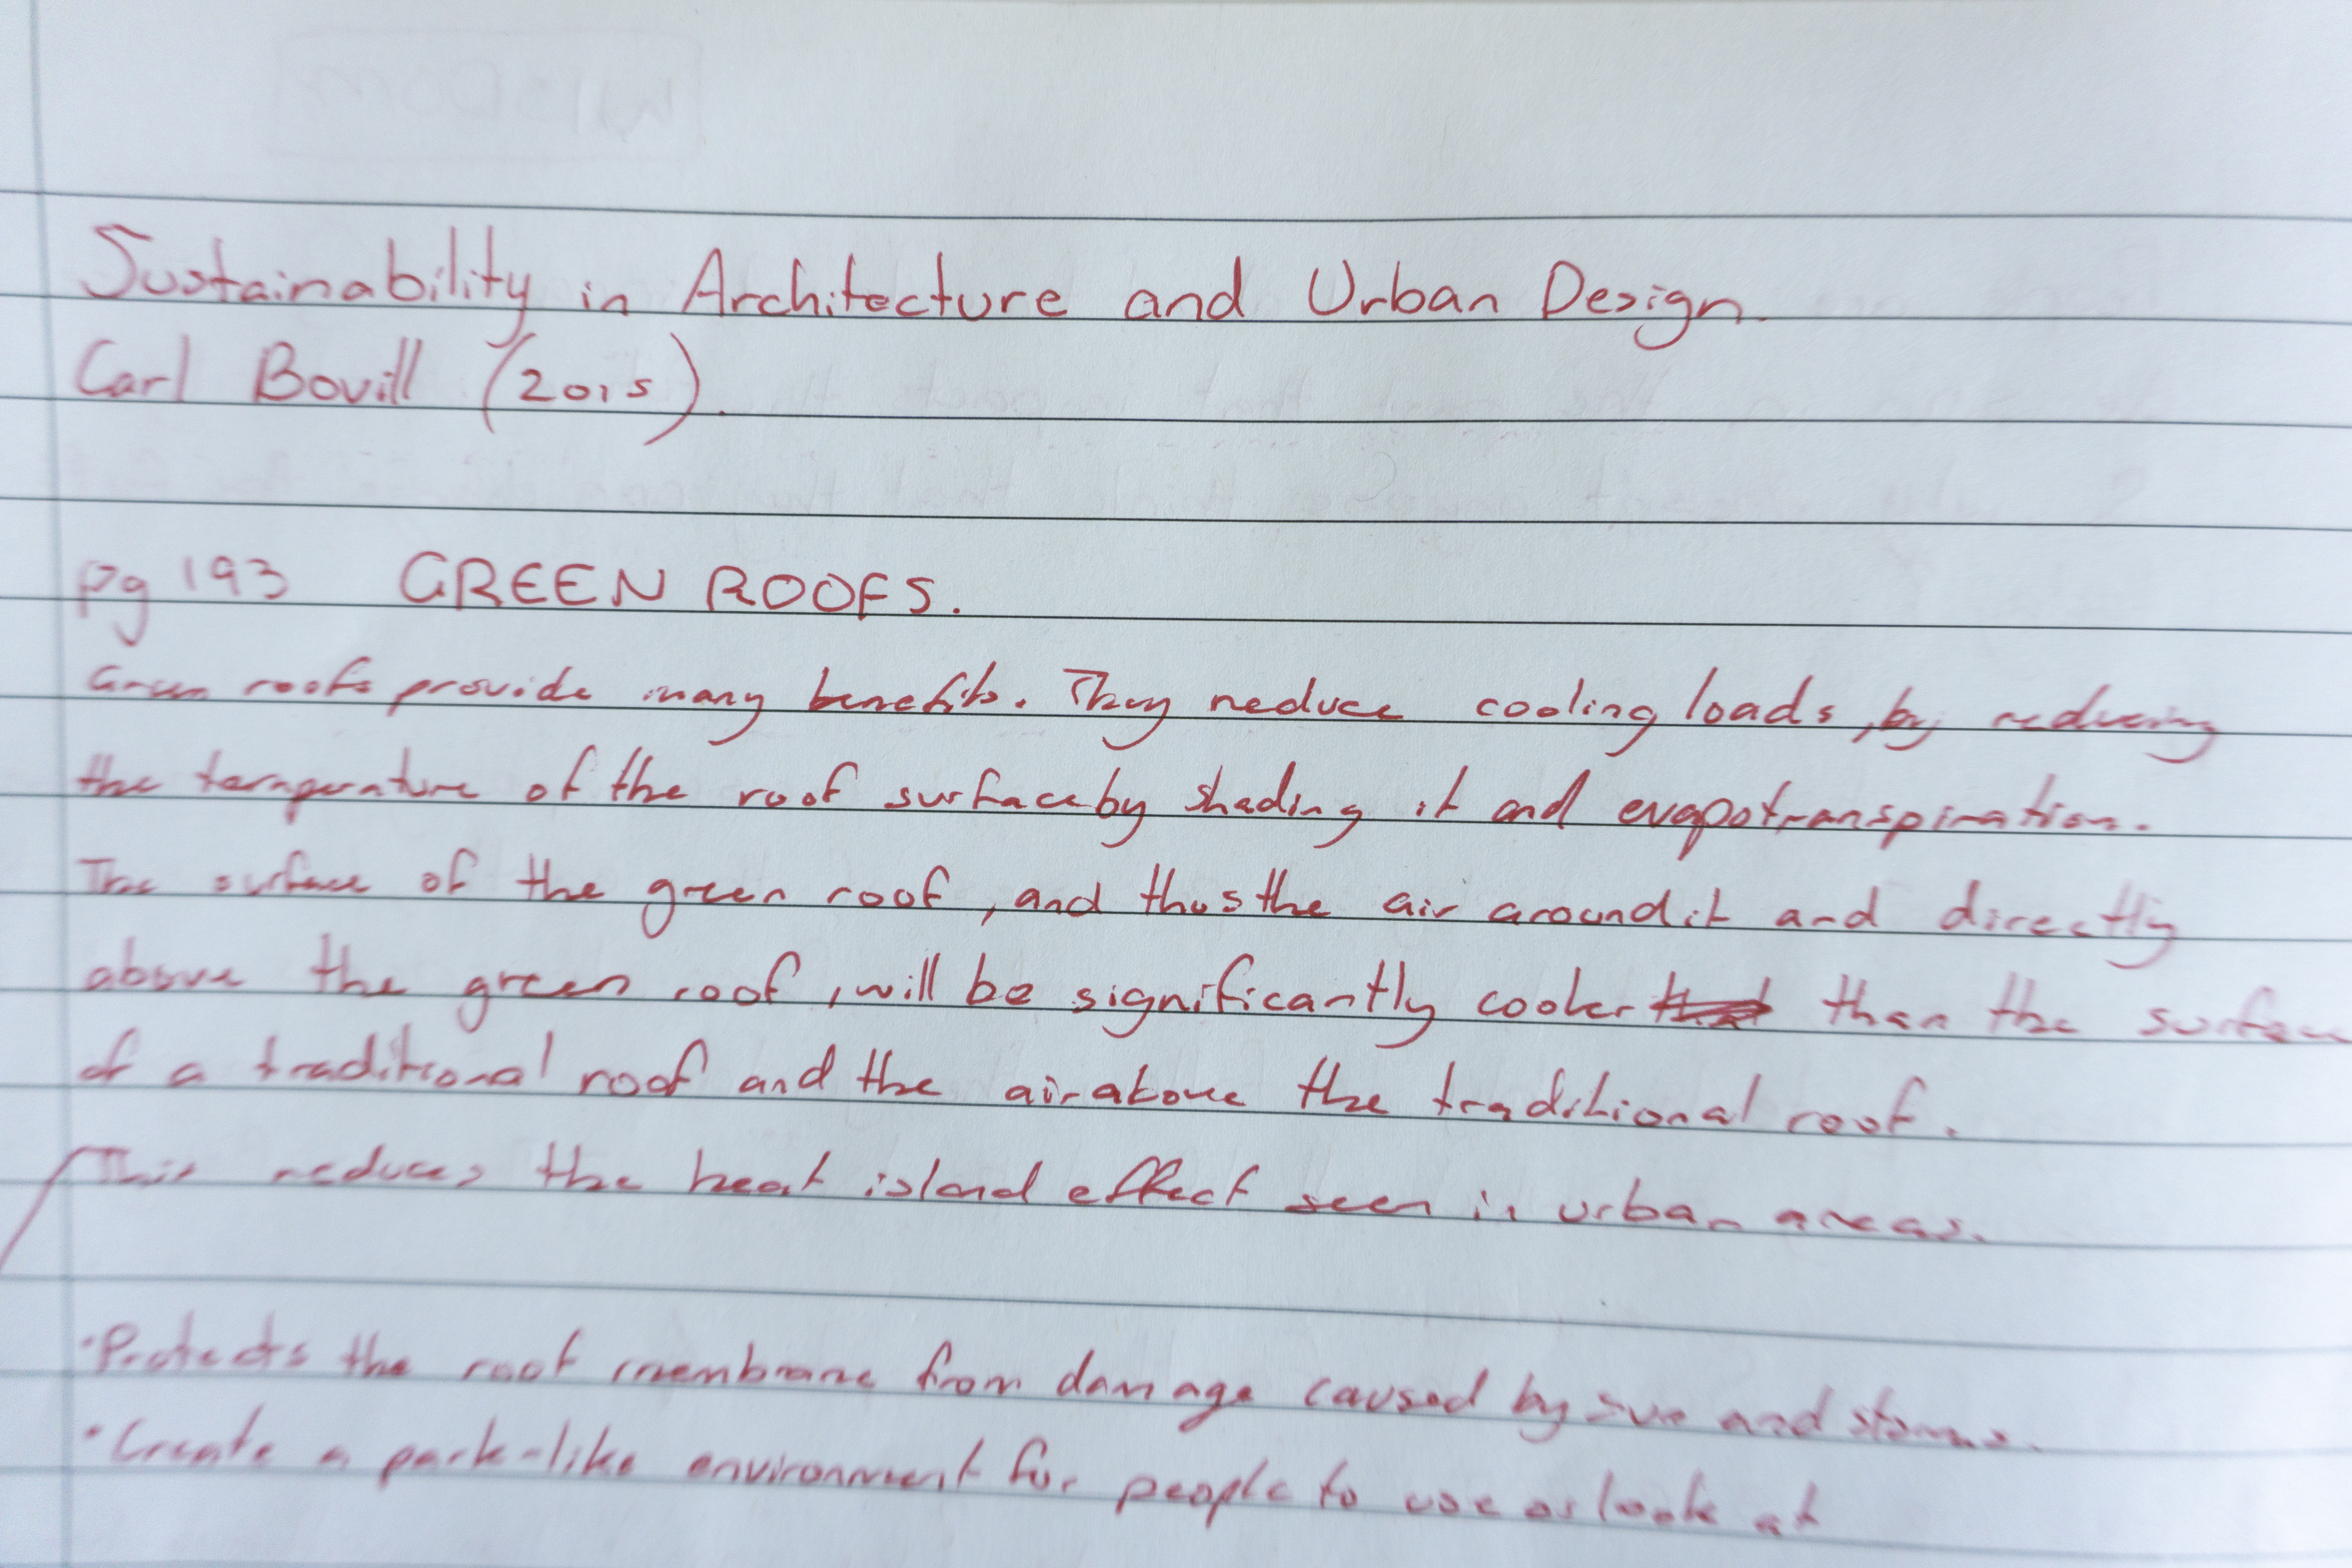 Sustainability in Architecture and Urban Design.
Carl Bovill (2015).
pg 193 GREEN ROOFS.
Green roofs provide many benefits. They reduce cooling loads, by reducing
the temperature of the roof surface by shading it and evapotranspiration.
The surface of the green roof, and thus the air around it and directly
above the green roof, will be significantly cooler than the surface
of a traditional roof and the air above the traditional roof.
This reduces the heat island effect seen in urban areas.
• Protects the roof membrane from damage caused by sun and storms.
• Create a park-like environment for people to use or look at